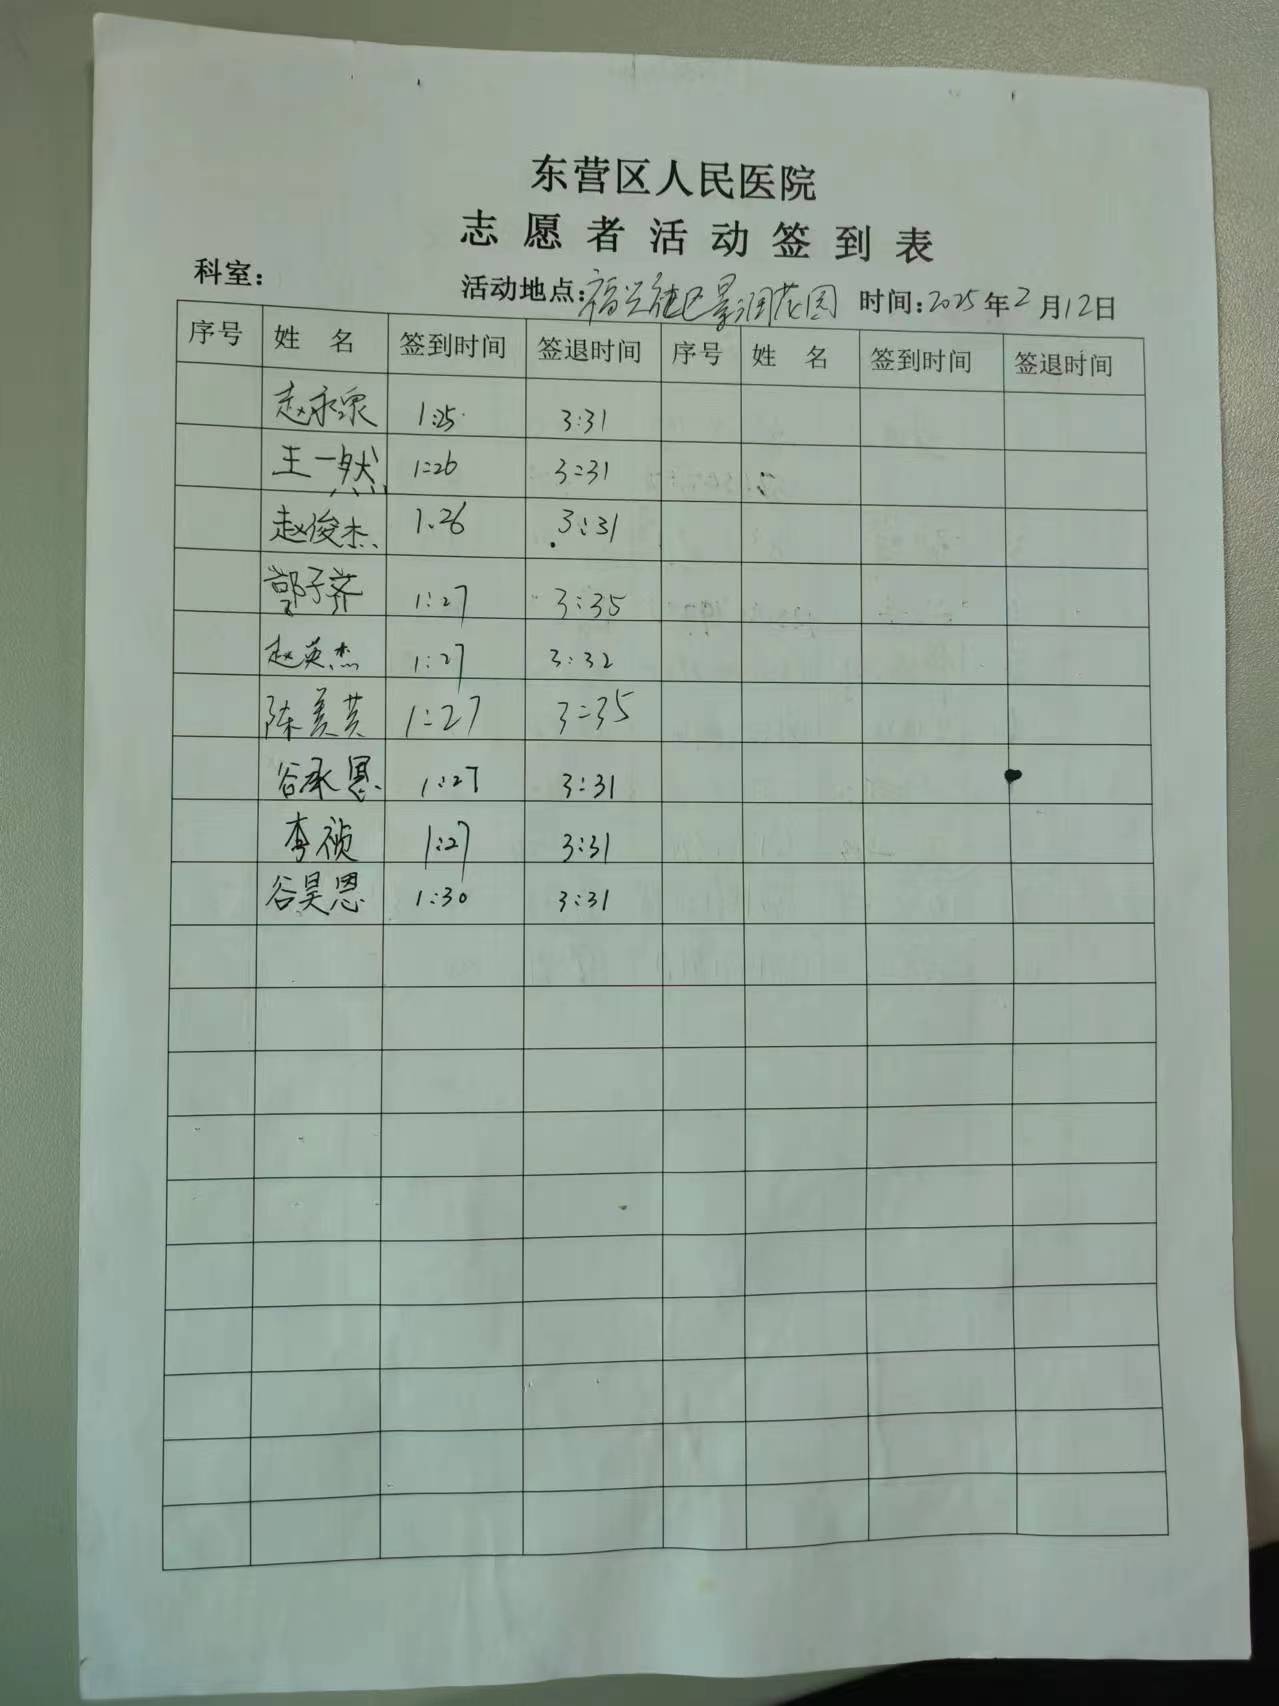 东营区人民医院
志愿者活动签到表
科室： 活动地点：福兴社区景润花园 时间：2025年2月12日
序号 姓 名 签到时间 签退时间 序号 姓 名 签到时间 签退时间
赵永泉 1:25 3:31
王一然 1:26 3:31
赵俊杰 1:26 3:31
郭子荞 1:27 3:35
赵英杰 1:27 3:32
陈美芸 1:27 3:35
谷承恩 1:27 3:31
李祯 1:27 3:31
谷昊恩 1:30 3:31